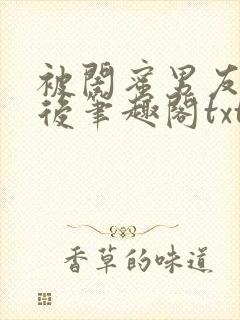 被閨蜜男友
後筆趣閣txt
香草的味道